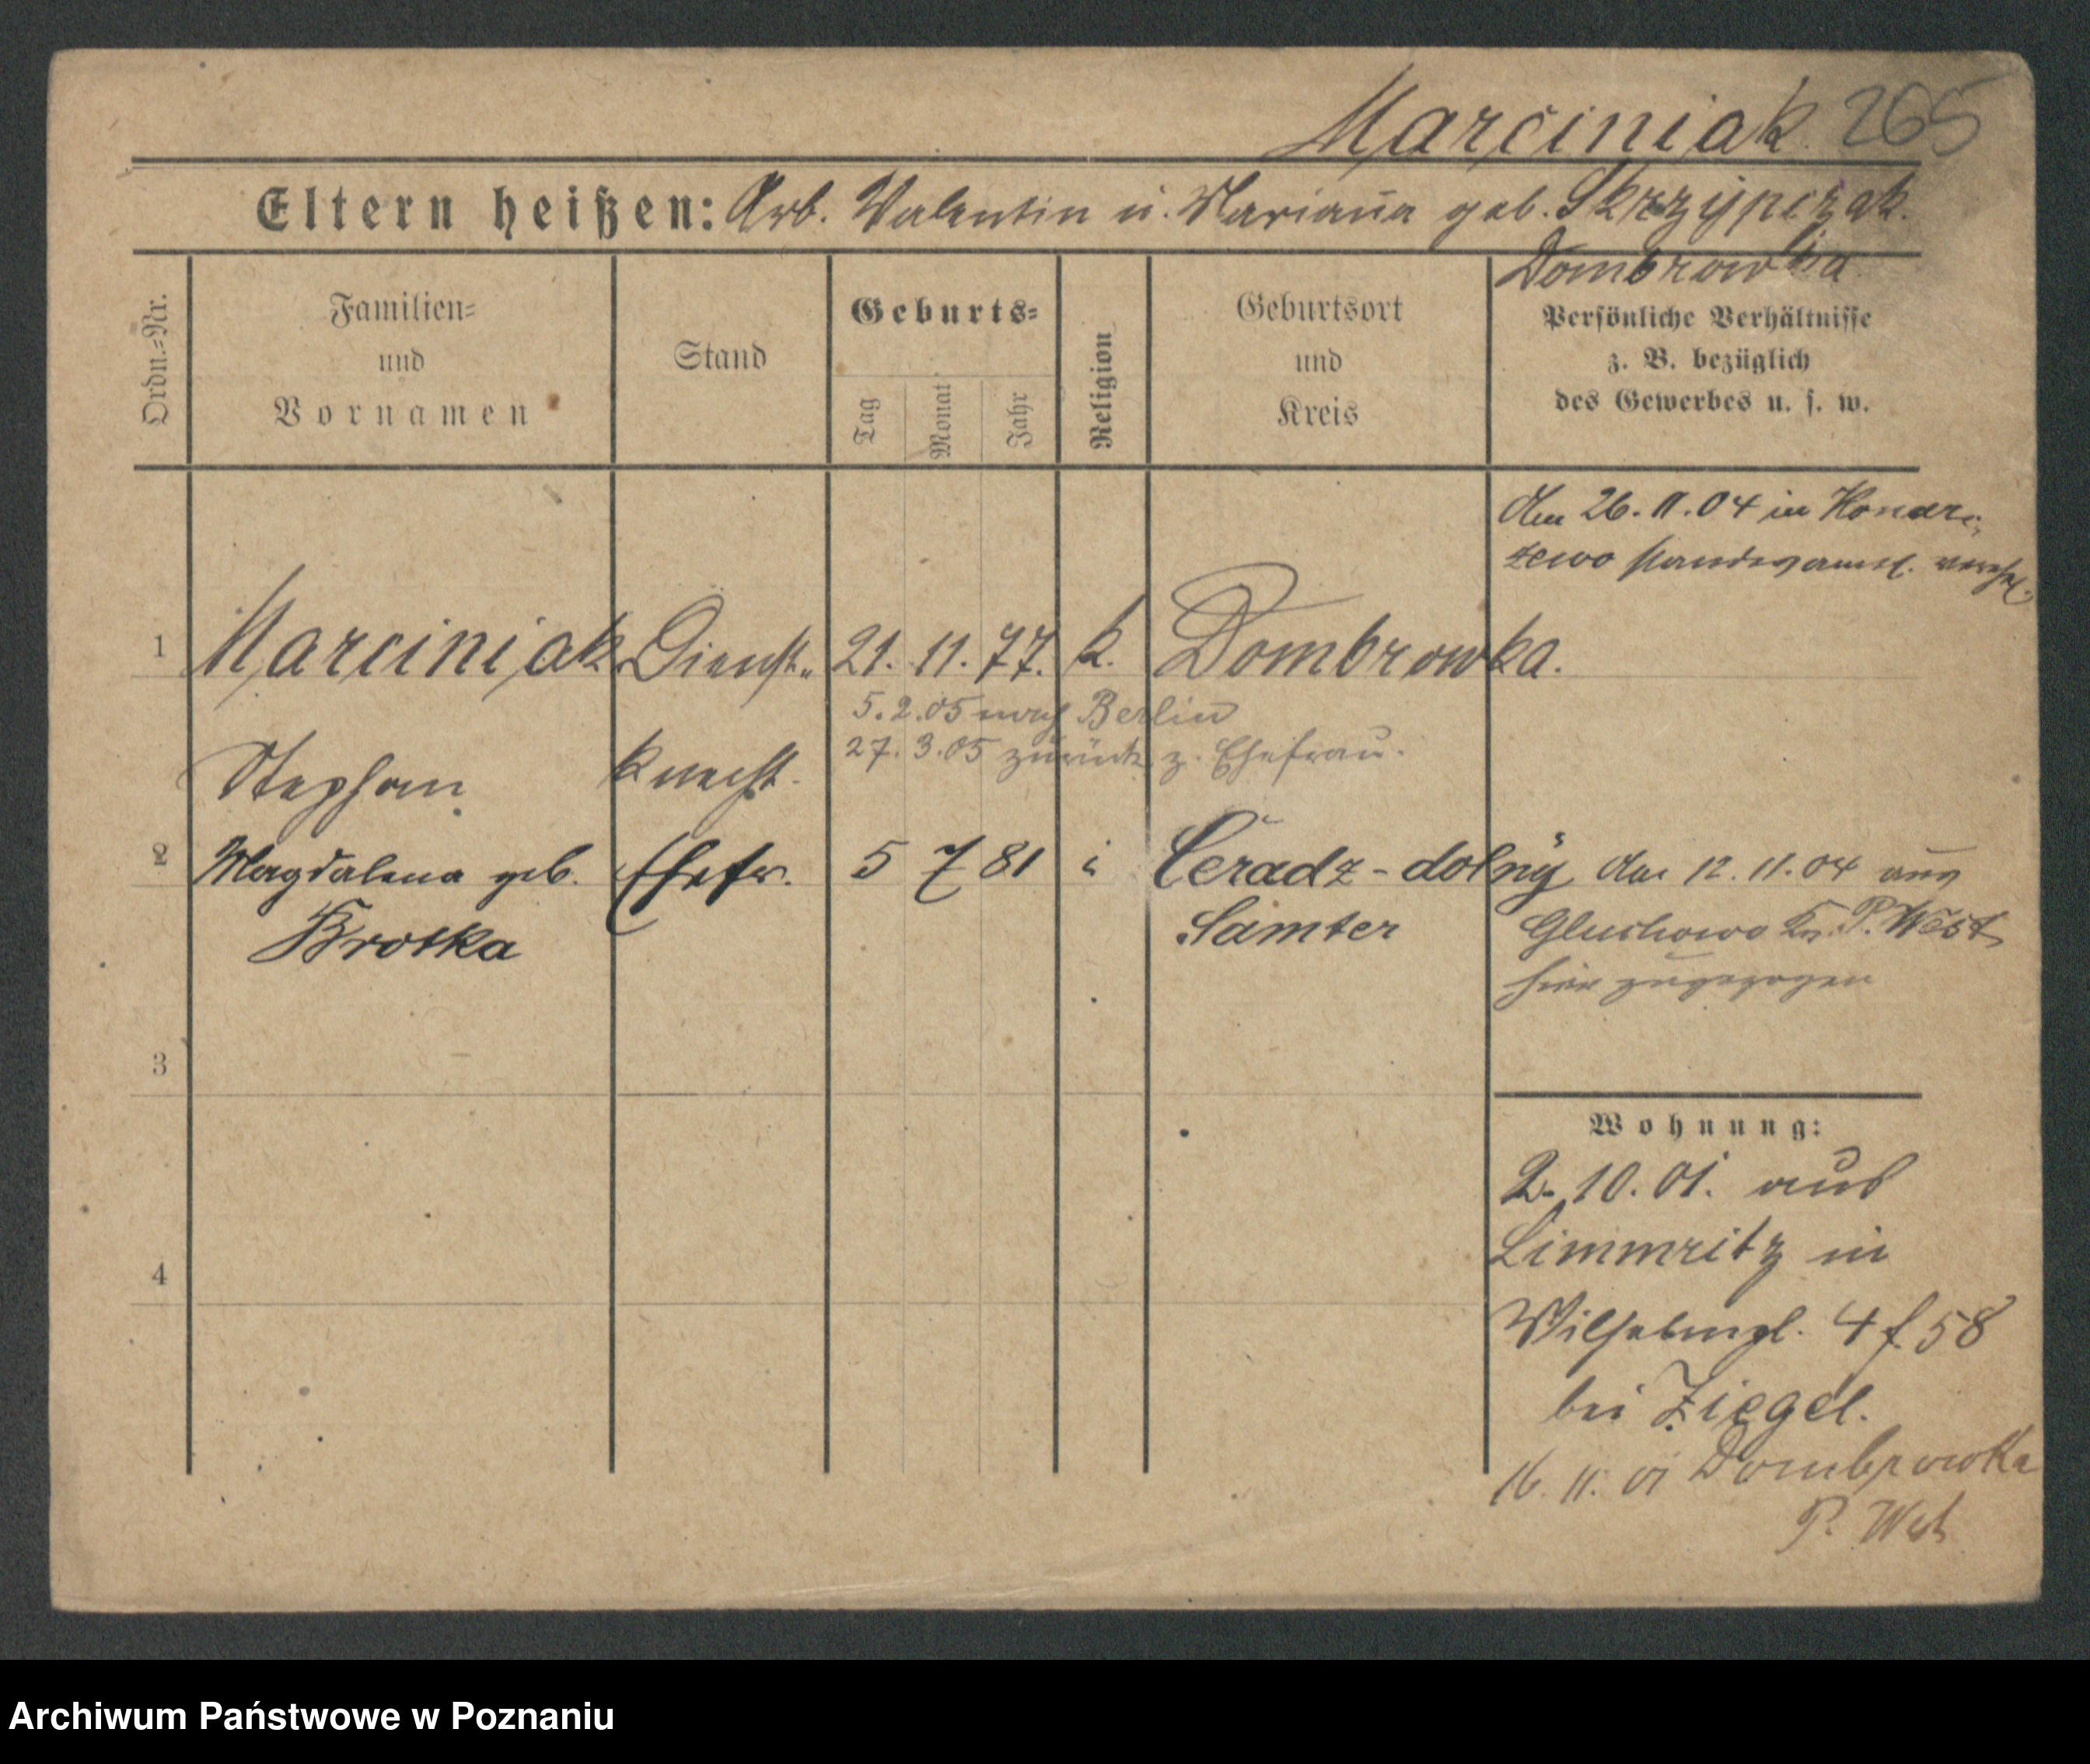 Marciniak. 265
Eltern heißen: Arb. Valentin u. Mariana geb. Skrzypczak.
Dombrowka
Ordn.=Nr.
Familien=
und
Vornamen
Stand
Geburts=
Tag
Monat
Jahr
Religion
Geburtsort
und
Kreis
Persönliche Verhältnisse
z. B. bezüglich
des Gewerbes u. s. w.
den 26.11.04 in Konar-
zewo standesamtl. verehel.
1 Marciniak Dienst- 21. 11. 77. k. Dombrowka.
5.2.05 nach Berlin
27.3.05 zurück z. Ehefrau.
Stephan knecht.
2 Magdalena geb. Ehefr. 5 7 81 i Ceradz-dolny den 12.11.04 aus
Brotka Samter Gluchowo Kr. P. West
hier zugezogen
3
Wohnung:
2. 10. 01. aus
Limmritz in
4
Wilhelmpl. 4 f. 58
bei Ziegel.
16. 11. 01 Dombrowka
P. West
Archiwum Państwowe w Poznaniu